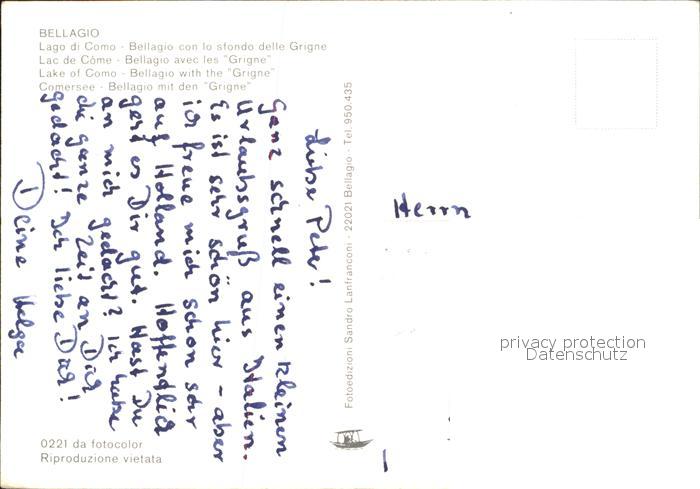 BELLAGIO
Lago di Como - Bellagio con lo sfondo delle Grigne
Lac de Côme - Bellagio avec les "Grigne"
Lake of Como - Bellagio with the "Grigne"
Comersee - Bellagio mit den "Grigne"
Lieber Peter!
Ganz schnell einen kleinen
Urlaubsgruß aus Italien.
Es ist sehr schön hier - aber
ich freue mich schon sehr
auf Holland. Hoffentlich
geht es Dir gut. Hast Du
an mich gedacht? Ich habe
die ganze Zeit an Dich
gedacht! Ich liebe Dich!
Deine Helga
0221 da fotocolor
Riproduzione vietata
Fotoedizioni Sandro Lanfranconi - 22021 Bellagio - Tel. 950.435
Herrn
privacy protection
Datenschutz